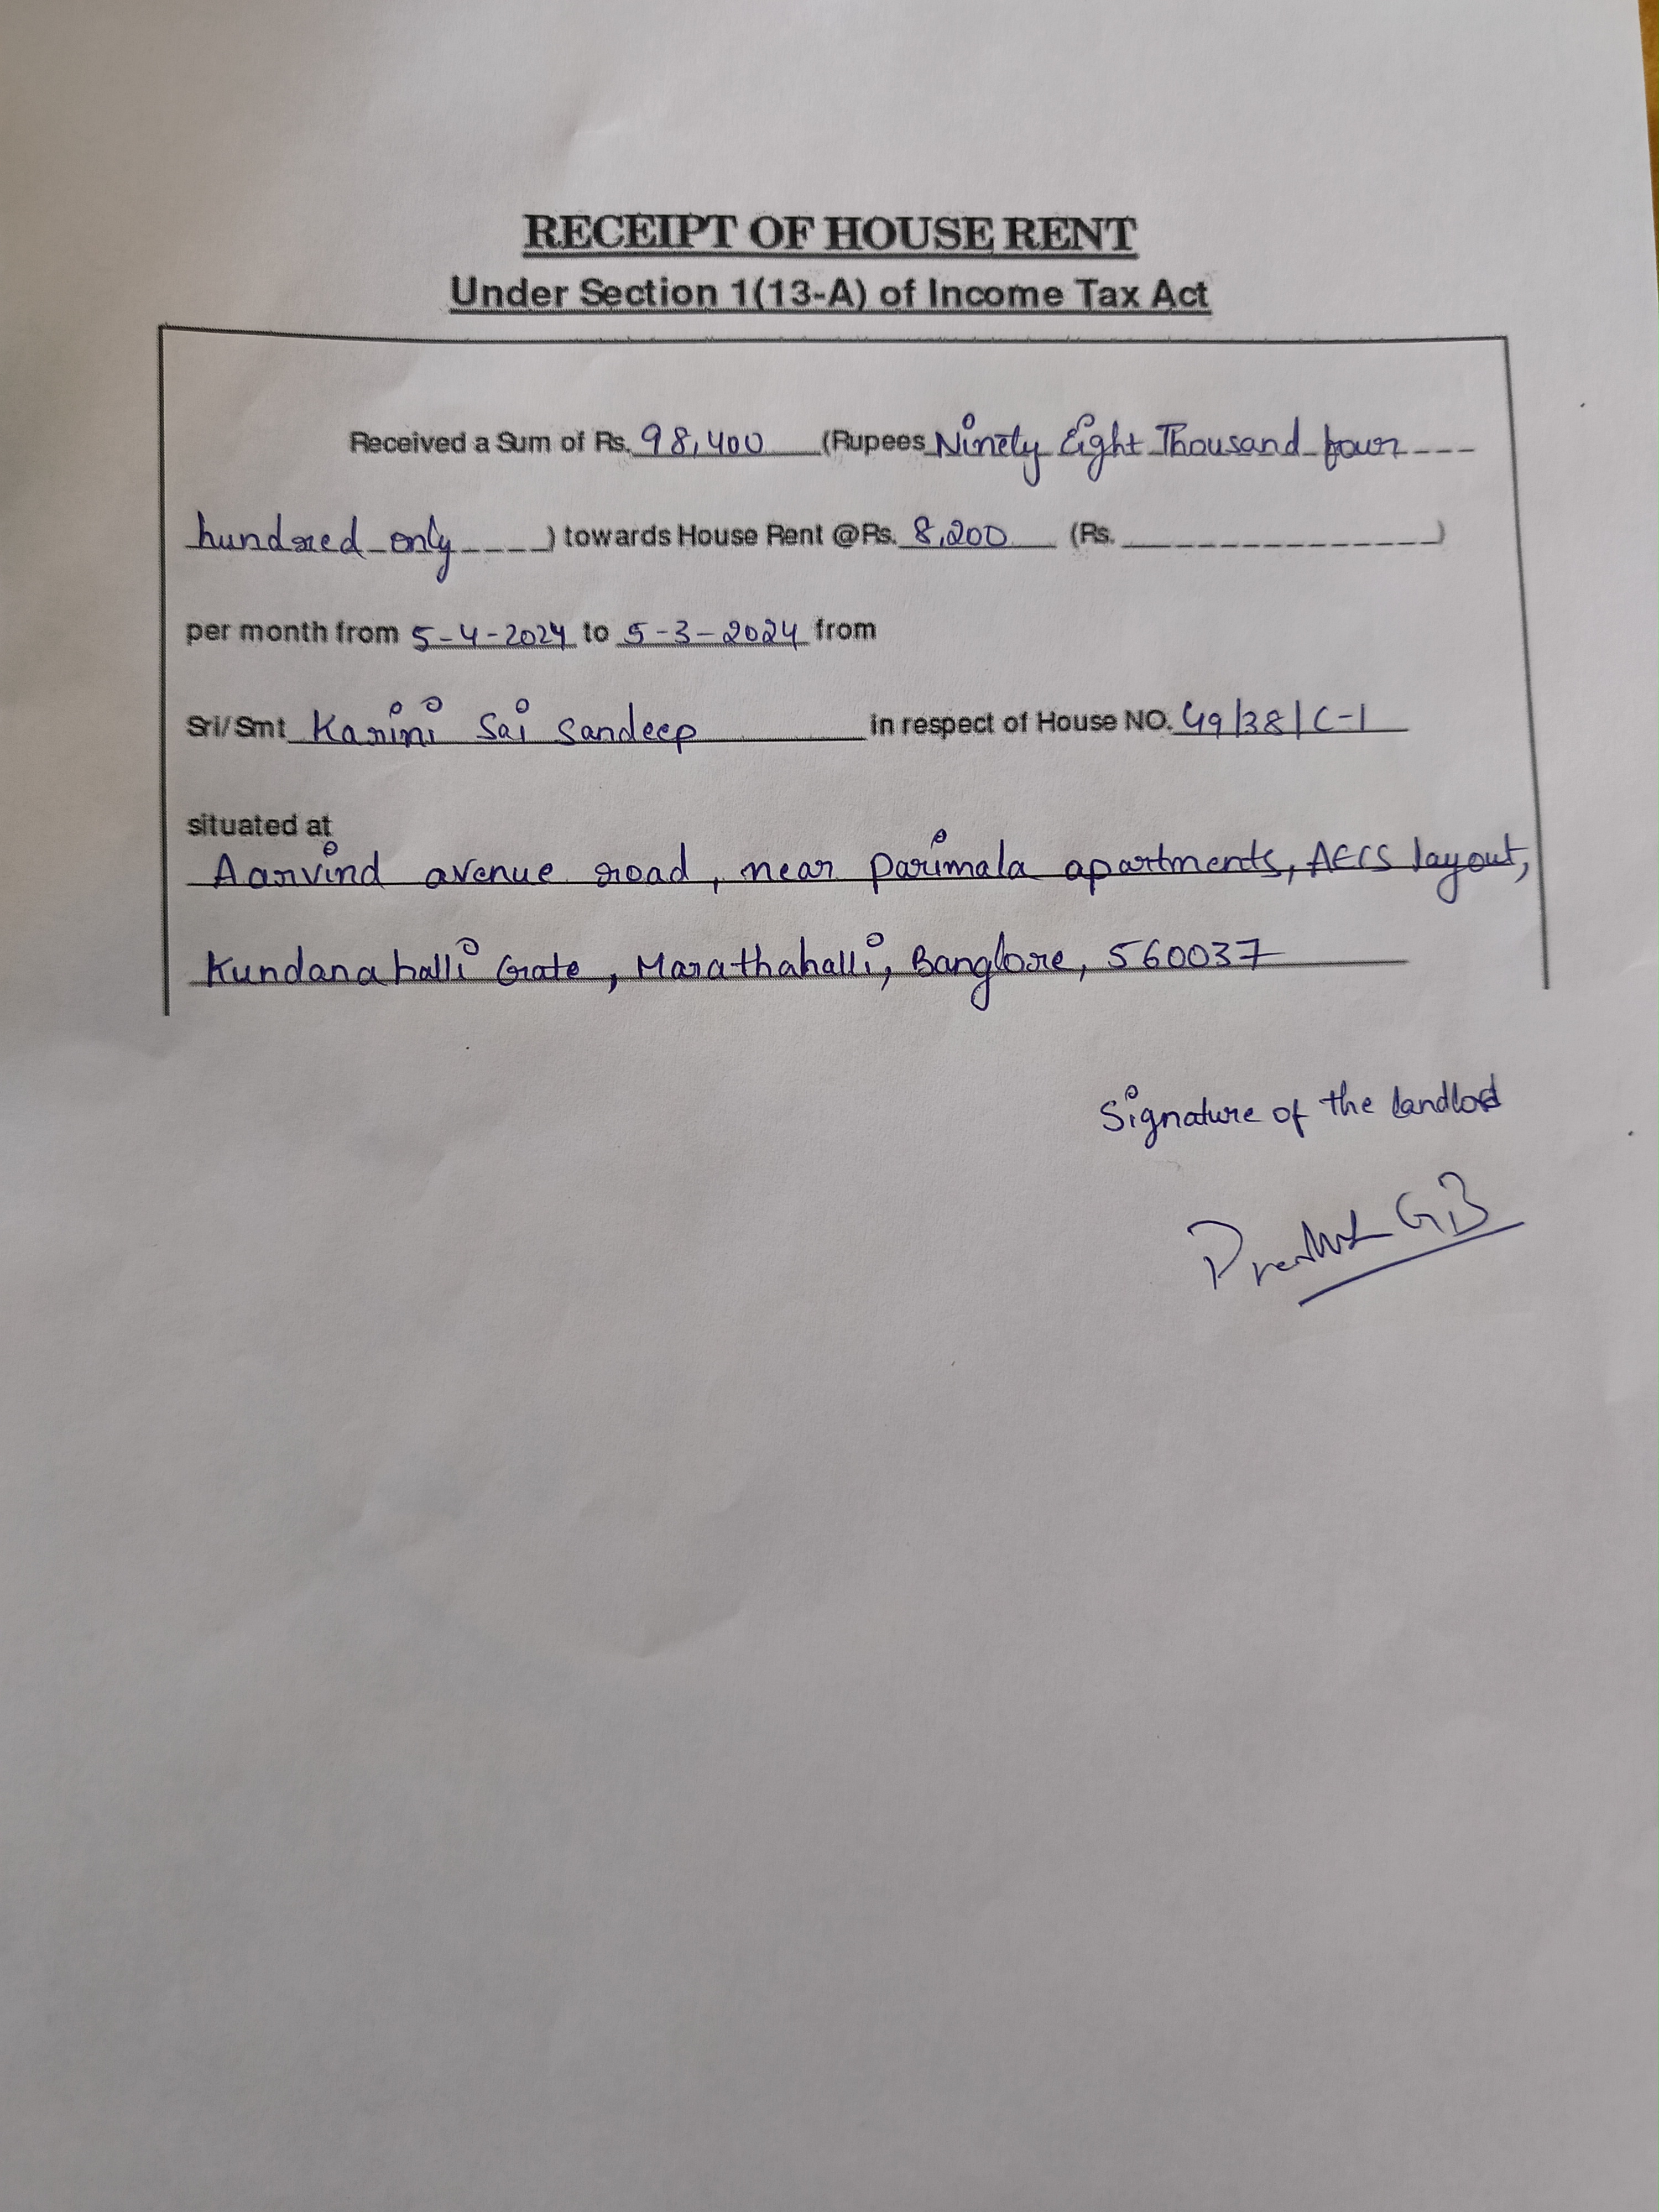 RECEIPT OF HOUSE RENT
Under Section 1(13-A) of Income Tax Act
Received a Sum of Rs. 98,400 (Rupees Ninety Eight Thousand four
hundred only ) towards House Rent @Rs. 8,200 (Rs. )
per month from 5-4-2024 to 5-3-2024 from
Sri/Smt Karini Sai Sandeep in respect of House NO. 49/38/C-1
situated at
Aarvind avenue road, near Parimala apartments, AECS layout,
Kundanahalli Gate, Marathahalli, Banglore, 560037
Signature of the landlod
GB